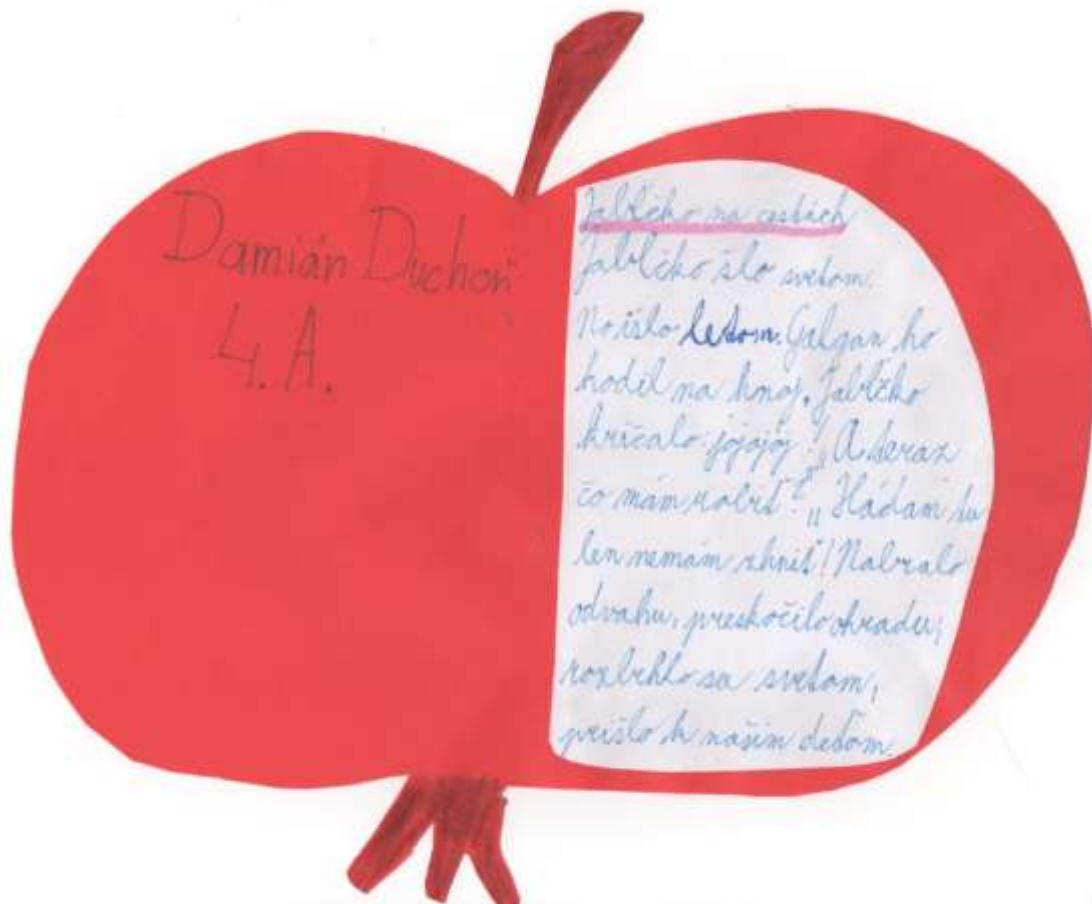 Damián Duchoň
4. A.
Jabĺčko na cestách
Jabĺčko šlo svetom.
No išlo letom. Galgan ho
hodil na hnoj. Jabĺčko
kričalo: jojojój! A teraz
čo mám robiť? „ Hádam tu
len nemám zhniť! Nabralo
odvahu, preskočilo ohradu,
rozbehlo sa svetom,
prišlo k našim deťom.